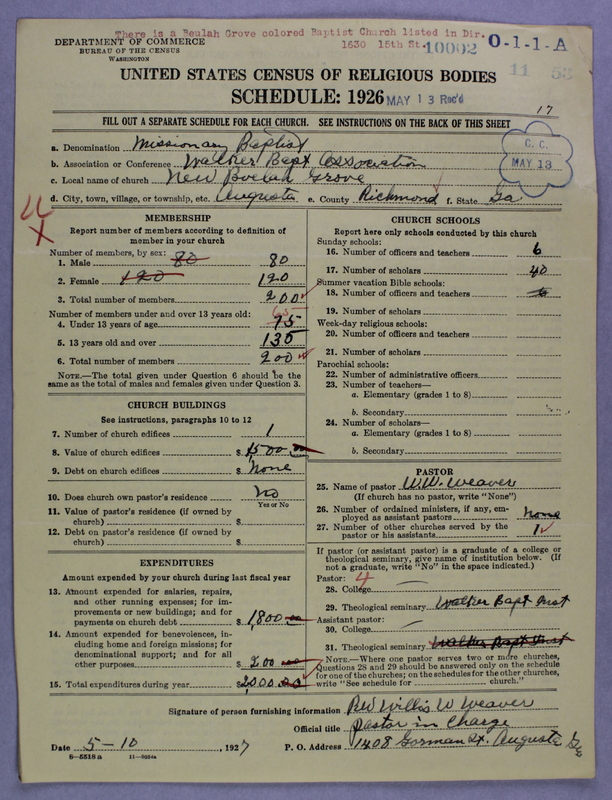 There is a Beulah Grove colored Baptist Church listed in Dir.
1630 15th St.
10002 O-1-1-A
11 53
DEPARTMENT OF COMMERCE
BUREAU OF THE CENSUS
WASHINGTON
UNITED STATES CENSUS OF RELIGIOUS BODIES
SCHEDULE: 1926
MAY 13 Rec'd
17
FILL OUT A SEPARATE SCHEDULE FOR EACH CHURCH. SEE INSTRUCTIONS ON THE BACK OF THIS SHEET
C. C.
MAY 13
a. Denomination Missionary Baptist
b. Association or Conference Walker Bapt Association
c. Local name of church New Buelah Grove
d. City, town, village, or township, etc. Augusta e. County Richmond f. State Ga
MEMBERSHIP
Report number of members according to definition of
member in your church
Number of members, by sex:
1. Male 80 80
2. Female 120 120
3. Total number of members 200
Number of members under and over 13 years old:
65
4. Under 13 years of age 75
5. 13 years old and over 135
6. Total number of members 200
NOTE.—The total given under Question 6 should be the
same as the total of males and females given under Question 3.
CHURCH BUILDINGS
See instructions, paragraphs 10 to 12
7. Number of church edifices 1
8. Value of church edifices $ 1500 00
9. Debt on church edifices $ None
10. Does church own pastor's residence No
Yes or No
11. Value of pastor's residence (if owned by
church) $
12. Debt on pastor's residence (if owned by
church) $
EXPENDITURES
Amount expended by your church during last fiscal year
13. Amount expended for salaries, repairs,
and other running expenses; for im-
provements or new buildings; and for
payments on church debt $ 1,800 00
14. Amount expended for benevolences, in-
cluding home and foreign missions; for
denominational support; and for all
other purposes $ 200 00
15. Total expenditures during year $ 2000 00
CHURCH SCHOOLS
Report here only schools conducted by this church
Sunday schools:
16. Number of officers and teachers 6
17. Number of scholars 40
Summer vacation Bible schools:
18. Number of officers and teachers
19. Number of scholars
Week-day religious schools:
20. Number of officers and teachers
21. Number of scholars
Parochial schools:
22. Number of administrative officers
23. Number of teachers—
a. Elementary (grades 1 to 8)
b. Secondary
24. Number of scholars—
a. Elementary (grades 1 to 8)
b. Secondary
PASTOR
25. Name of pastor W.W. Weaver
(If church has no pastor, write "None")
26. Number of ordained ministers, if any, em-
ployed as assistant pastors None
27. Number of other churches served by the
pastor or his assistants 1
If pastor (or assistant pastor) is a graduate of a college or
theological seminary, give name of institution below. (If
not a graduate, write "No" in the space indicated.)
Pastor: 4
28. College
29. Theological seminary Walker Bapt Inst
Assistant pastor:
30. College
31. Theological seminary Walker Bapt Inst
NOTE.—Where one pastor serves two or more churches,
Questions 28 and 29 should be answered only on the schedule
for one of the churches; on the schedules for the other churches,
write "See schedule for church."
Signature of person furnishing information Rev Willis W Weaver
Official title Pastor in Charge
Date 5-10, 1927 P. O. Address 1408 Gorman St. Augusta Ga
8—5518 a 11—9264a